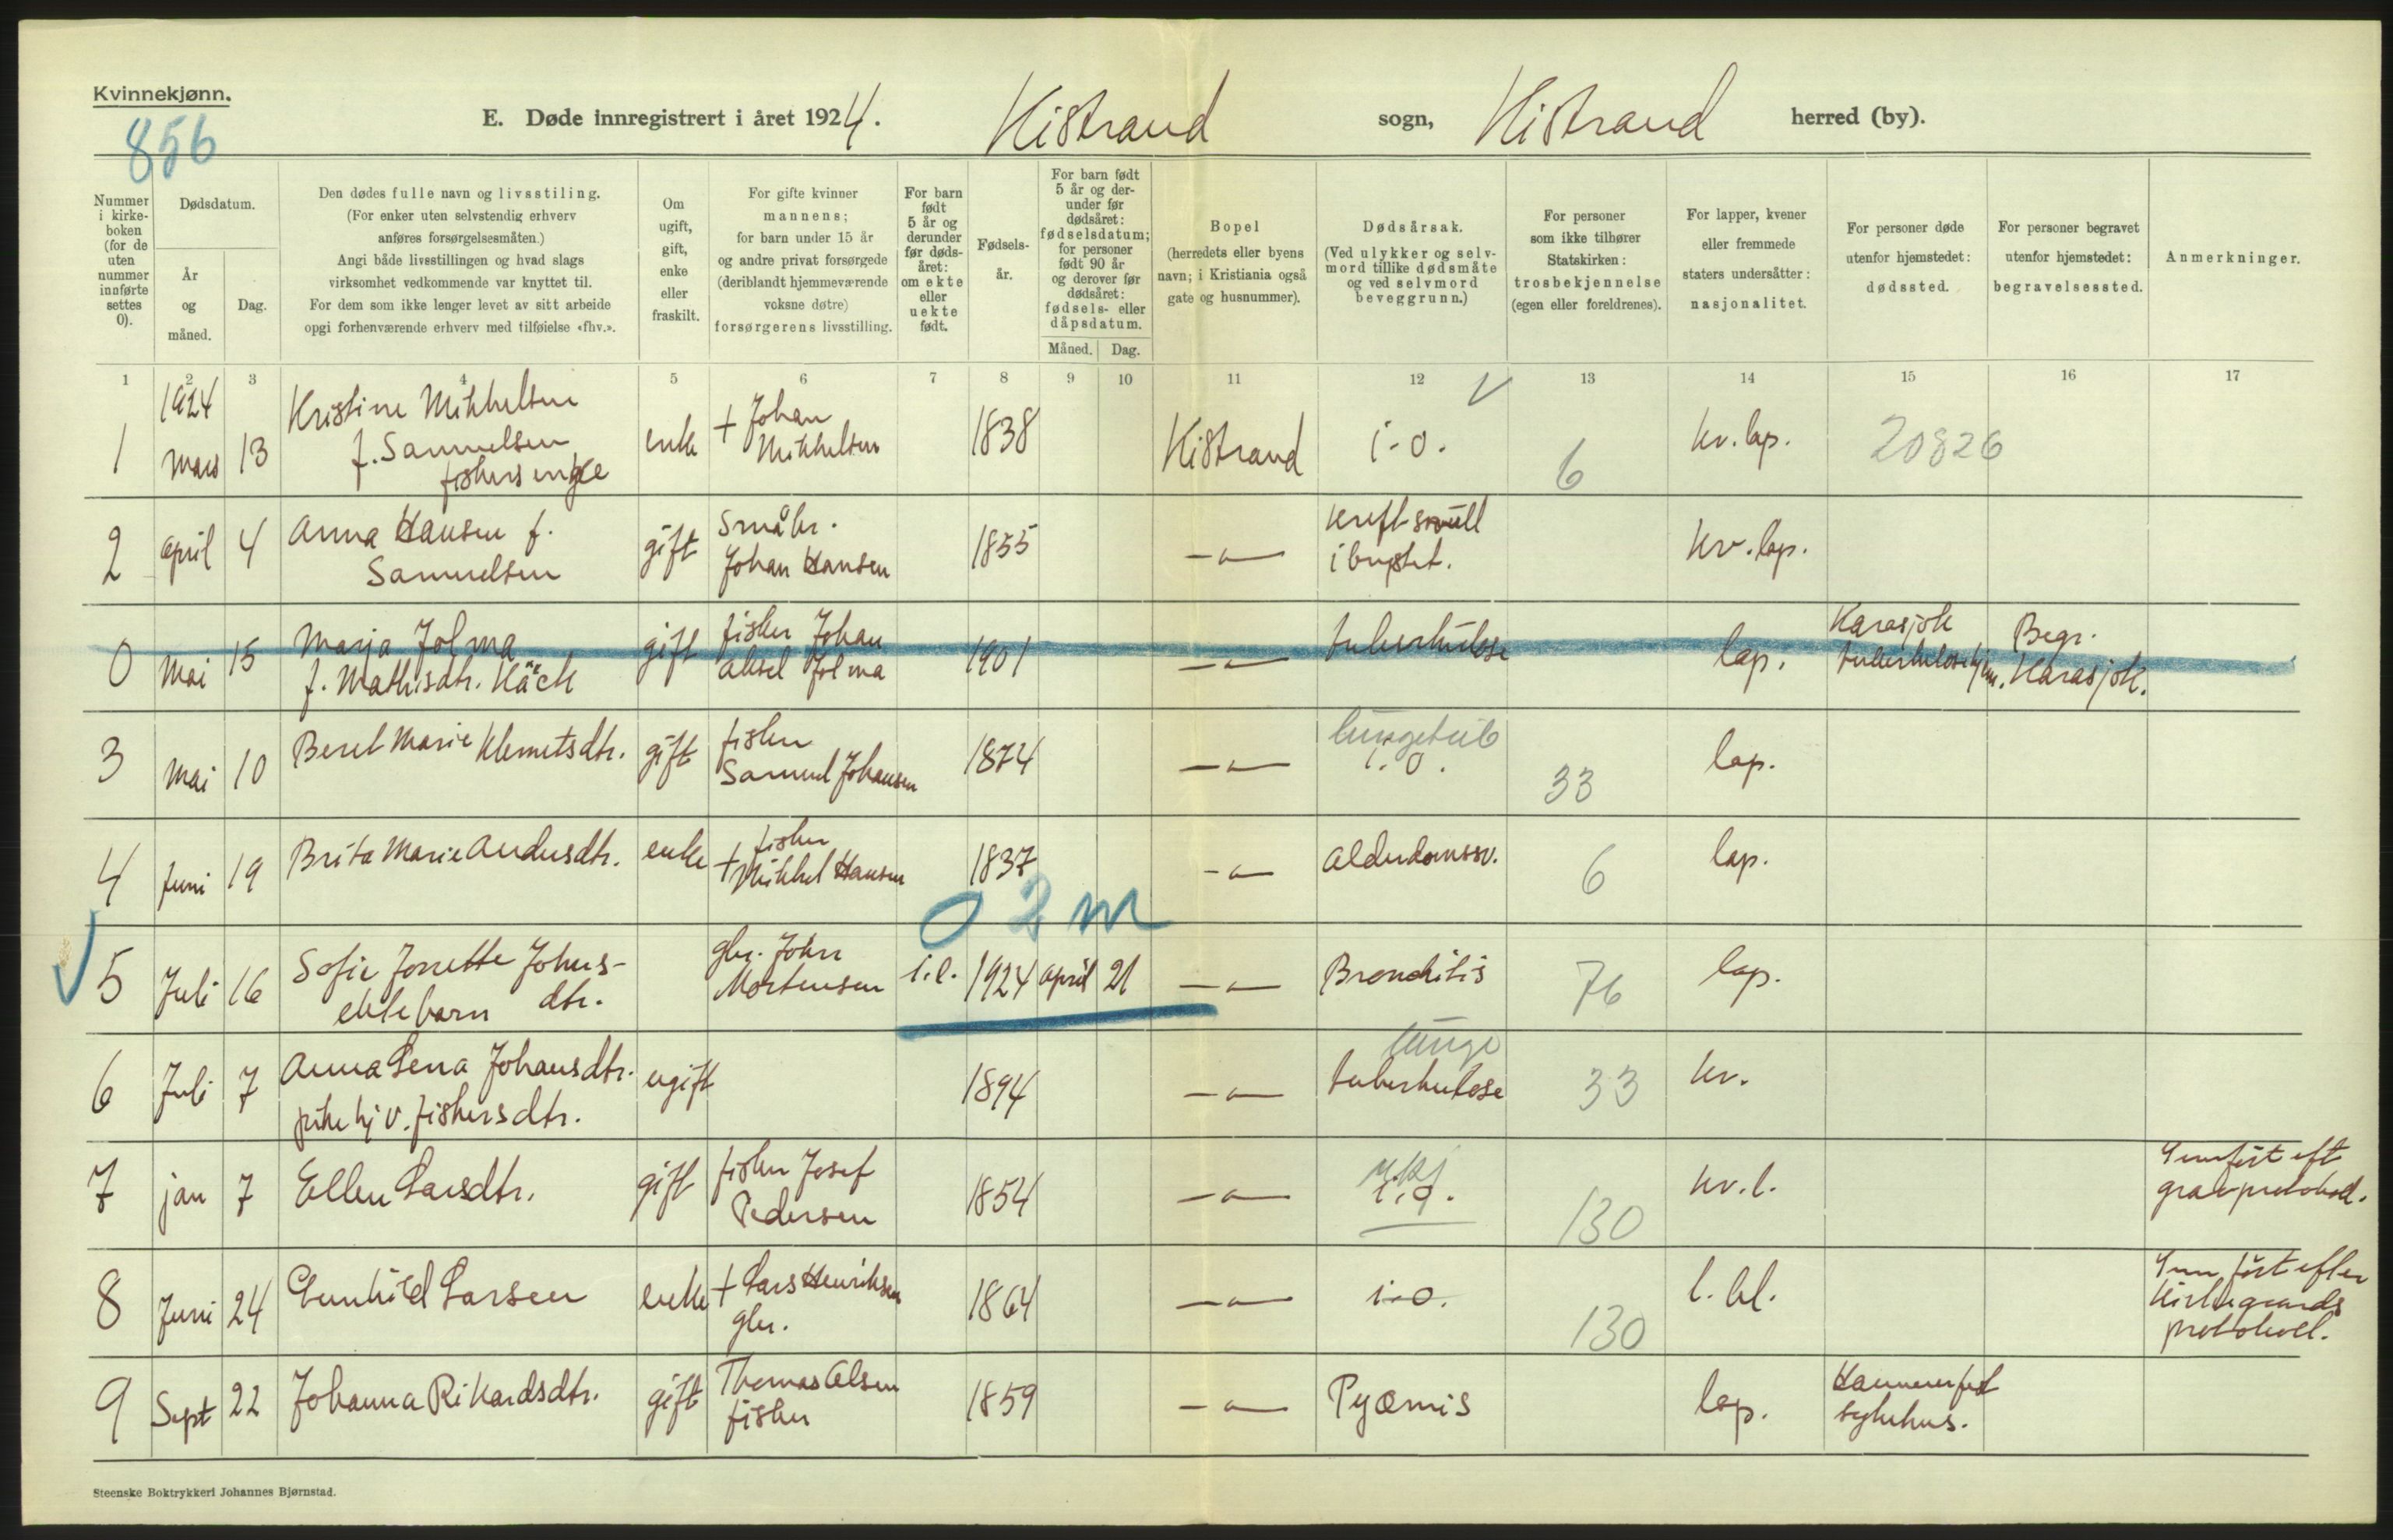 Kvinnekjønn.
856
E. Døde innregistrert i året 1924. Kistrand sogn, Kistrand herred (by).
Nummer i kirke-boken (for de uten nummer innførte settes 0).
Dødsdatum.
År og måned.
Dag.
Den dødes fulle navn og livsstiling.
(For enker uten selvstendig erhverv
anføres forsørgelsesmåten.)
Angi både livsstillingen og hvad slags
virksomhet vedkommende var knyttet til.
For dem som ikke lenger levet av sitt arbeide
opgi forhenværende erhverv med tilføielse «fhv.».
Om ugift, gift, enke eller fraskilt.
For gifte kvinner
mannens;
for barn under 15 år
og andre privat forsørgede
(deriblandt hjemmeværende
voksne døtre)
forsørgerens livsstilling.
For barn født 5 år og derunder før døds-året: om ekte eller uekte født.
Fødsels-år.
For barn født 5 år og der-under før dødsåret: fødselsdatum; for personer født 90 år og derover før dødsåret: fødsels- eller dåpsdatum.
Måned. Dag.
Bopel
(herredets eller byens
navn; i Kristiania også
gate og husnummer).
Dødsårsak.
(Ved ulykker og selv-
mord tillike dødsmåte
og ved selvmord
beveggrunn.)
For personer
som ikke tilhører
Statskirken:
trosbekjennelse
(egen eller foreldrenes).
For lapper, kvener
eller fremmede
staters undersåtter:
nasjonalitet.
For personer døde
utenfor hjemstedet:
dødssted.
For personer begravet
utenfor hjemstedet:
begravelsessted.
Anmerkninger.
1 2 3 4 5 6 7 8 9 10 11 12 13 14 15 16 17
1 1924 mars 13 Kristine Mikkelsen f. Samuelsen fiskers enke enke + Johan Mikkelsen 1838 Kistrand i-o. 6 kv. lap. 20826
2 april 4 Anna Hansen f. Samuelsen gift småbr. Johan Hansen 1855 —"— kreftsvull i brystet. kv. lap.
0 Mai 15 Marja Jolma f. Mathisdtr. Käck gift fisker Johan Aksel Jolma 1901 —"— tuberkulose lap. Karasjok tuberkulosehjem. Begr. Karasjok.
3 Mai 10 Beret Marie Klemetsdtr. gift fisker Samuel Johansen 1874 —"— lungetub i.o. 33 lap.
4 Juni 19 Brita Marie Andersdtr. enke fisker + Mikkel Hansen 1837 —"— Alderdomssv. 6 lap.
0 2 m
5 Juli 16 Sofie Jonette Johns-dtr. ektebarn gbr. John Mortensen i.e. 1924 april 21 —"— Bronchitis 76 lap.
6 Juli 7 Anna Lena Johansdtr. pike hj v. fiskersdtr. ugift 1894 —"— lunge tuberkulose 33 kv.
7 jan 7 Ellen Larsdtr. gift fisker Josef Pedersen 1854 —"— ukj i.o. 130 kv. l. Innført eft gravprotokol.
8 Juni 24 Gunhild Larsen enke + Lars Henriksen gbr. 1864 —"— i-o. 130 l. bl. Innført efter kirkegaards protokoll.
9 Sept 22 Johanna Rikardsdtr. gift Thomas Olsen fisker 1859 —"— Pyæmis lap. Hammerfest sykehus.
Steenske Boktrykkeri Johannes Bjørnstad.